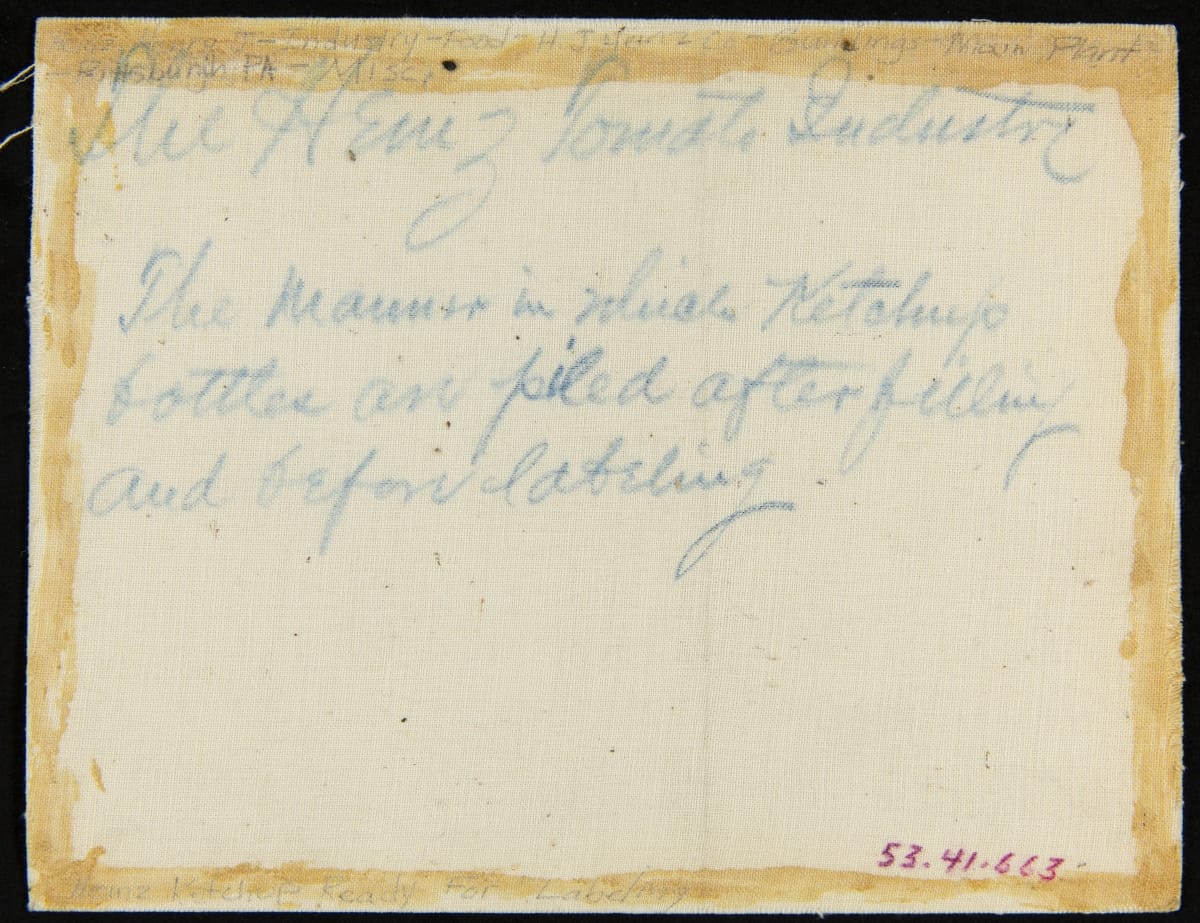 Industry - Food - H J Heinz Co - Buildings - Main Plant
- Pittsburgh PA - Misc.
The Heinz Tomato Industry
The Manner in which Ketchup
bottles are piled after filling
and before labeling
53.41.663
Heinz Ketchup Ready For Labeling